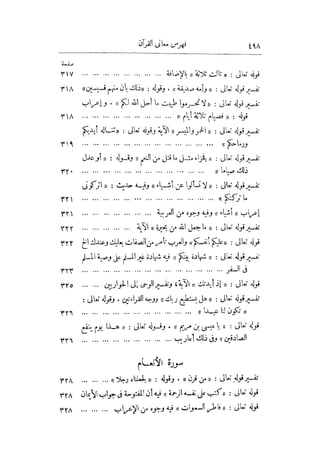 ٤٩٨ فهرس معانى القرآن
صفحة
قوله تعالى : « ثالث ثلاثة » بالإضافة ... ... ... ... ... ... ... ٣١٧
تفسير قوله تعالى : « وأمه صديقة » . وقوله : « ذلك بأن منهم قسيسين » ٣١٨
تفسير قوله تعالى : « لا تحرموا طيبات ما أحل الله لكم » . وإعراب
قوله : « فصيام ثلاثة أيام » ... ... ... ... ... ... ... ... ٣١٨
تفسير قوله تعالى : « الخمر والميسر » الآية وقوله تعالى : « تناله أيديكم
ورماحكم » ... ... ... ... ... ... ... ... ... ... ٣١٩
تفسير قوله تعالى : « بفزاء مثل ما قتل من النعم » وقوله : « أو عدل
ذلك صياما » ... ... ... ... ... ... ... ... ... ... ٣٢٠
تفسير قوله تعالى : « لا تسألوا عن أشياء » وفيه حديث : « اتركونى
ما تركتكم » ... ... ... ... ... ... ... ... ... ... ٣٢١
إعراب « أشياء » وفيه وجوه من العربية ... ... ... ... ... ... ٣٢١
تفسير قوله تعالى : « ما جعل الله من بحيرة » الآية ... ... ... ... ٣٢٢
قوله تعالى : « عليكم أنفسكم » والعرب تأمر من الصفات بعليك وعندك الخ ٣٢٢
تفسير قوله تعالى : « شهادة بينكم » فيه شهادة غير المسلم على وصية المسلم
فى السفر ... ... ... ... ... ... ... ... ... ... ... ٣٢٣
قوله تعالى : « إذ أيدتك » الآية وتفسير الوحى إلى الحواريين ... ... ٣٢٥
تفسير قوله تعالى : « هل يستطيع ربك » ووجه القراءتين . وقوله تعالى :
« تكون لنا عيدا » ... ... ... ... ... ... ... ... ... ٣٢٦
قوله تعالى : « يا عيسى بن مريم » . وقوله تعالى : « هذا يوم ينفع
الصادقين » وفى ذلك أعاريب ... ... ... ... ... ... ... ٣٢٦
سورة الأنعام
تفسير قوله تعالى : « من قرن » . وقوله : « لجعلناه رجلا » ... ... ... ٣٢٨
قوله تعالى : « كتب على نفسه الرحمة » فيه أن المفتوحة فى جواب الأيمان ٣٢٨
قوله تعالى : « فاطر السموات » فيه وجوه من الإعراب ... ... ... ٣٢٨